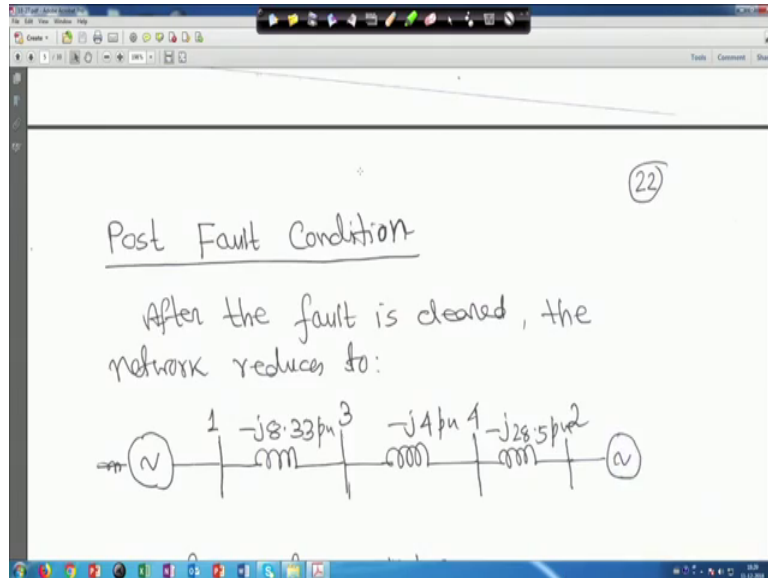 File Edit View Window Help
Create
Tools Comment
22
Post Fault Condition
After the fault is cleared, the
network reduces to:
1 -j8.33pu 3 -j4pu 4 -j28.5pu 2